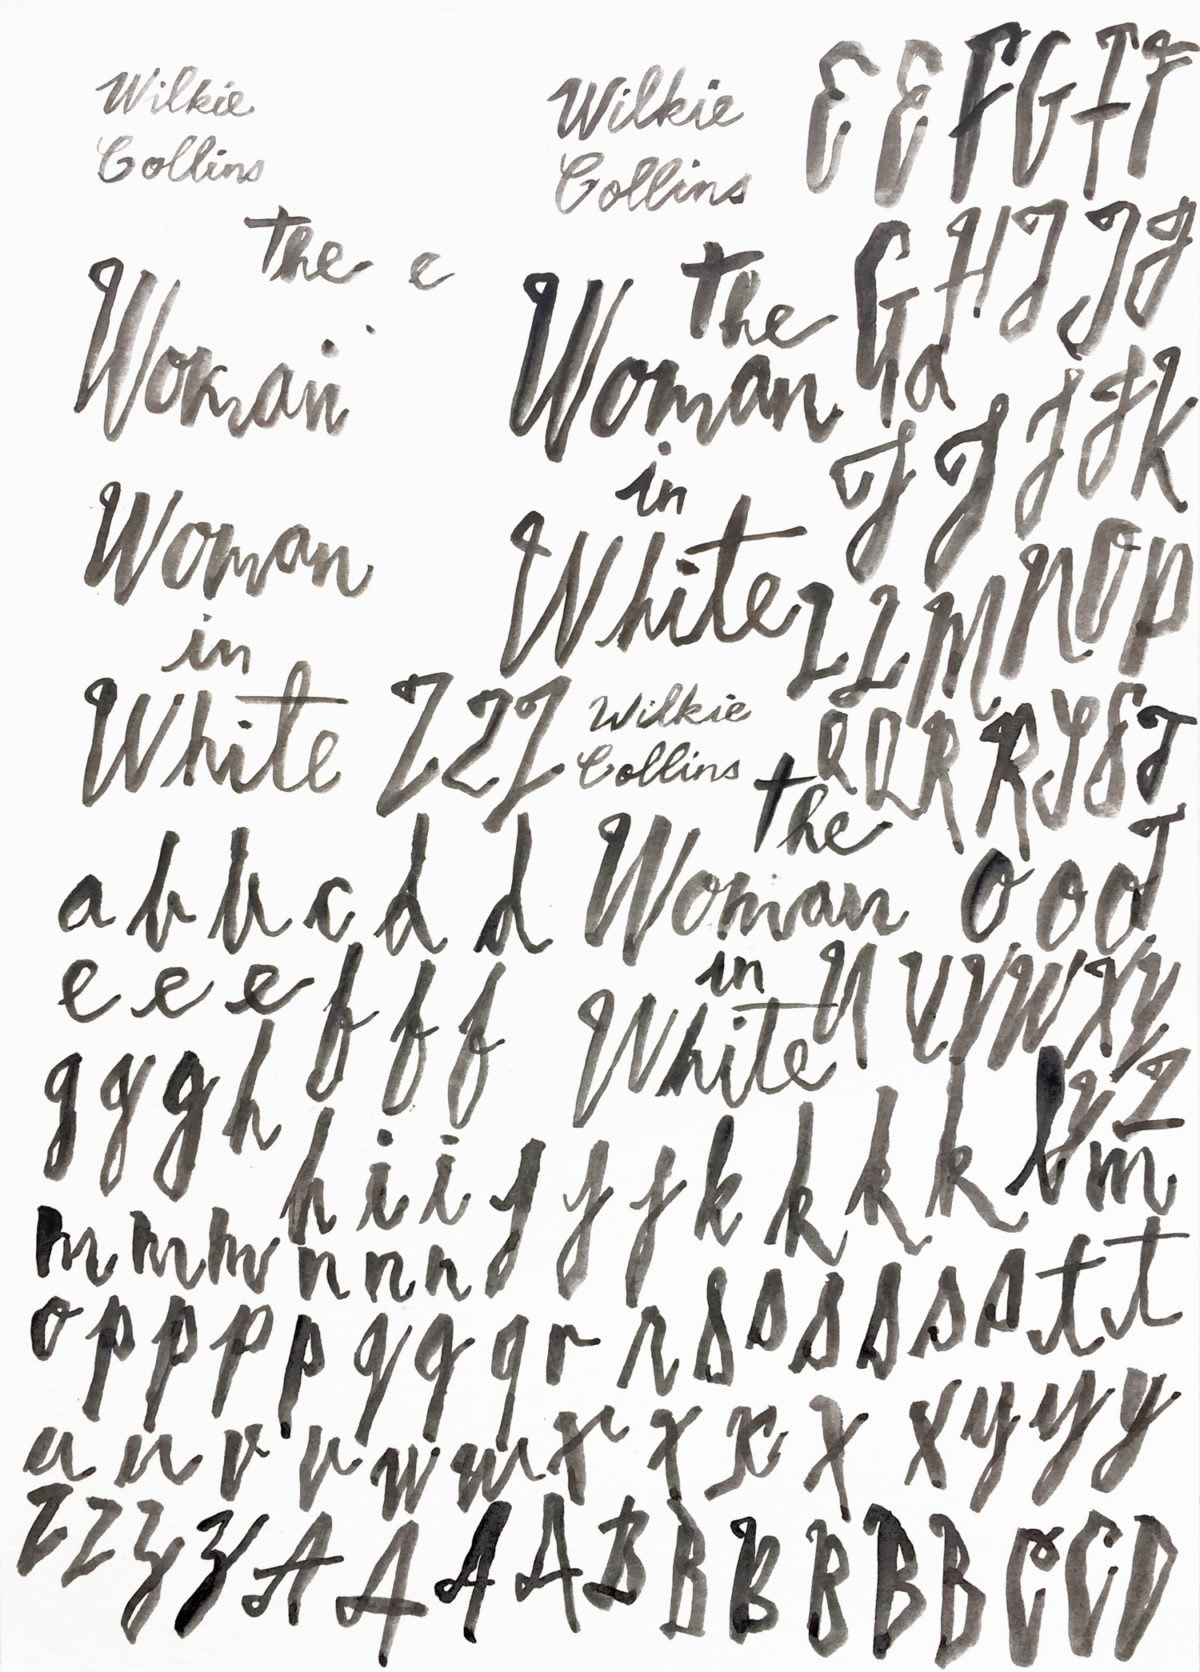 Wilkie
Collins
the e
Woman
Woman
in
White
Z Z Z
Wilkie
Collins
the
Woman
in
White
Wilkie
Collins
the
Woman
in
White
E E F G I F
G H J J J
G a
J J J J K
Z Z M N O P
Q Q R R S S T
O O O T
U V V W X Y
Y Z
a b b c d d
e e e f f f
g g g h
h i i j j j k k k k l m
m m m n n n
o p p p p q q q r r s s s s s s t t
u u v v w w x x x x x y y y
z z z z A A A A B B B B B B C C D